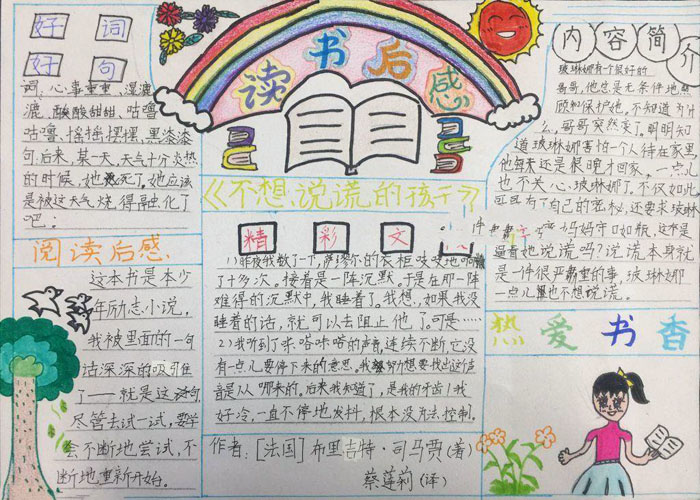 读书后感
《不想说谎的孩子》
好词
好句
词、心事重重、湿漉
漉、酸酸甜甜、咕噜
咕噜、摇摇摆摆、黑漆漆
句、后来,某一天,天气十分炎热
的时候,她死了。她应该
是被这天气烧得融化了
吧!
阅读后感
这本书是本少
年励志小说,
我被里面的一句
话深深的吸引住
了——就是这句,
尽管去试一试,要学
会不断地尝试,不
断地重新开始。
精彩文
1)昨夜我数了一下,萨缪尔的衣柜吱吱地响
了十多次。接着是一阵沉默。于是在那一阵
难得的沉默中,我睡着了。我想,如果我没
睡着的话,就可以去阻止他了。可是……
2)我听到了咔嗒咔嗒的声音,连续不断它没
有一点儿要停下来的意思。我努力想要找出这个声
音是从哪来的。后来我知道了,是我的牙齿!我
好冷,一直不停地发抖,根本没方法控制。
作者:[法国]布里吉特·司马贾(著)
蔡莲莉(译)
内容简介
玻琳娜有个很好的
哥哥,他总是无条件地照
顾和保护她。不知道为什
么,哥哥突然变了。明明知
道玻琳娜害怕一个人待在家里,
他每天还是很晚才回家,一点儿
也不关心玻琳娜了。不仅如此
有了自己的秘密,还要求玻琳
妈妈守口如瓶,这不是
逼着她说谎吗?说谎本身就
是一件很严重的事,玻琳娜
一点儿也不想说谎。
热爱书香